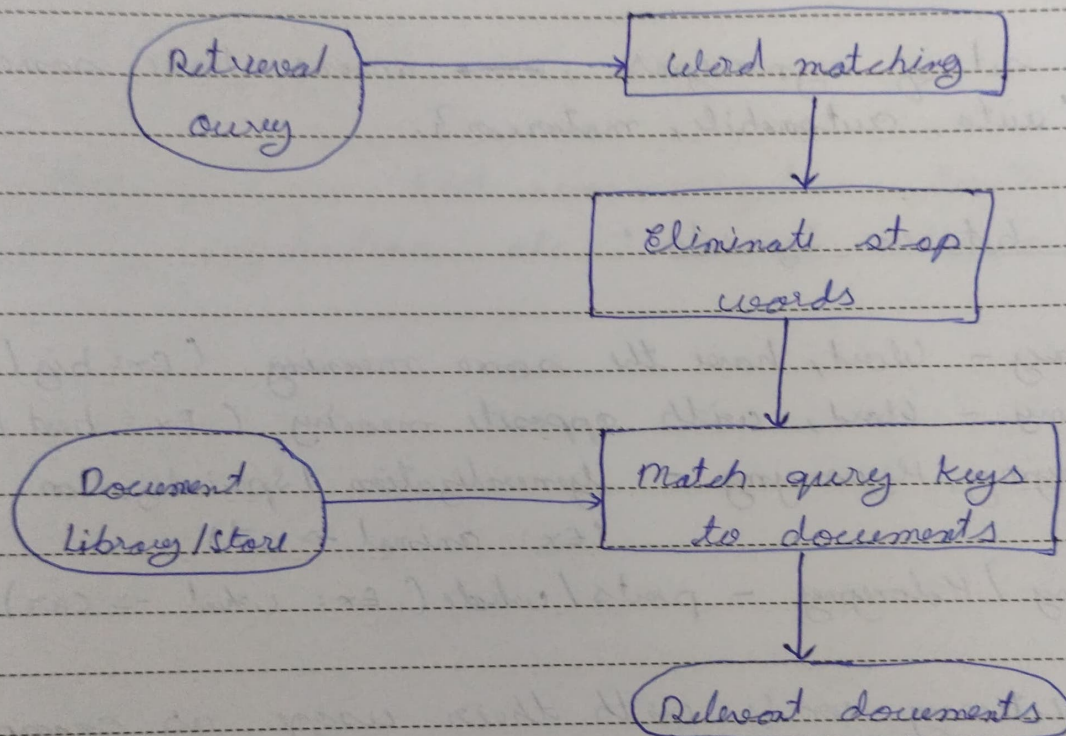 Retrieval
Query
Word matching
Eliminate stop
words
Document
Library/Store
Match query keys
to documents
Relevant documents